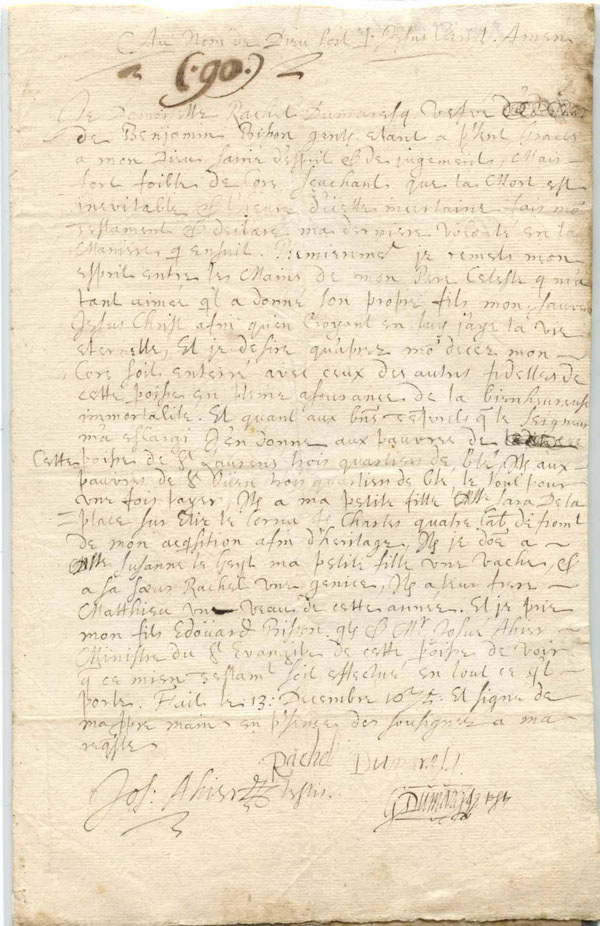 Au Nom de Dieu soit J. Amen
(90.)
Je Damoiselle Rachel Dumaresq, Vefve
de Benjamin Bisson gent, etant a p'sent graces
a mon Dieu saine d'esprit & de jugement, Mais
fort foible de Cors, scachant que la Mort est
inevitable & l'heure d'icelle incertaine, fais mo
Testament & declare ma derniere volonte en la
Maniere q ensuit. Premieremt je remets mon
esprit entre les Mains de mon Pere Celeste q m'a
tant aimee qu'il a donne son propre fils mon sauve
Jesus Christ afin qu'en Croyant en luy j'aye la vie
eternelle, Et je desire qu'aprez mo decez mon
Cors soit enterre avec ceux des autres fidelles de
cette poisse en pleine assurance de la bienheureuse
immortalite. Et quant aux bns q le Seigneur
m'a eslargi J'en donne aux pauvres de
Cette poisse de St Laurens trois quartiers de ble, Its aux
pauvres de St Ouen trois quartiers de ble, le tout pour
une fois payer, Its a ma petite fille Sara De la
place sur Elie le Cornu fs Charles quatre Cab. de froment
de mon acqsition afin d'heritage, Its je doe a
Susanne le Geyt ma petite fille une vache, &
a sa soeur Rachel une genice, Its a leur frere
Matthieu une Veau de cette annee. Et je prie
mon fils Edouard Bisson & Mr Josué Ahier
Ministre du St Evangile de cette poisse de voir
q ce mien testamt soit effectué en tout ce q'l
porte. Fait le 13: Decembre Et signe de
ma ppre main en p'sence des sousignez a ma
reqste
Rachel Dumaresq.
Jos: Ahier tesm
G Dumaresq